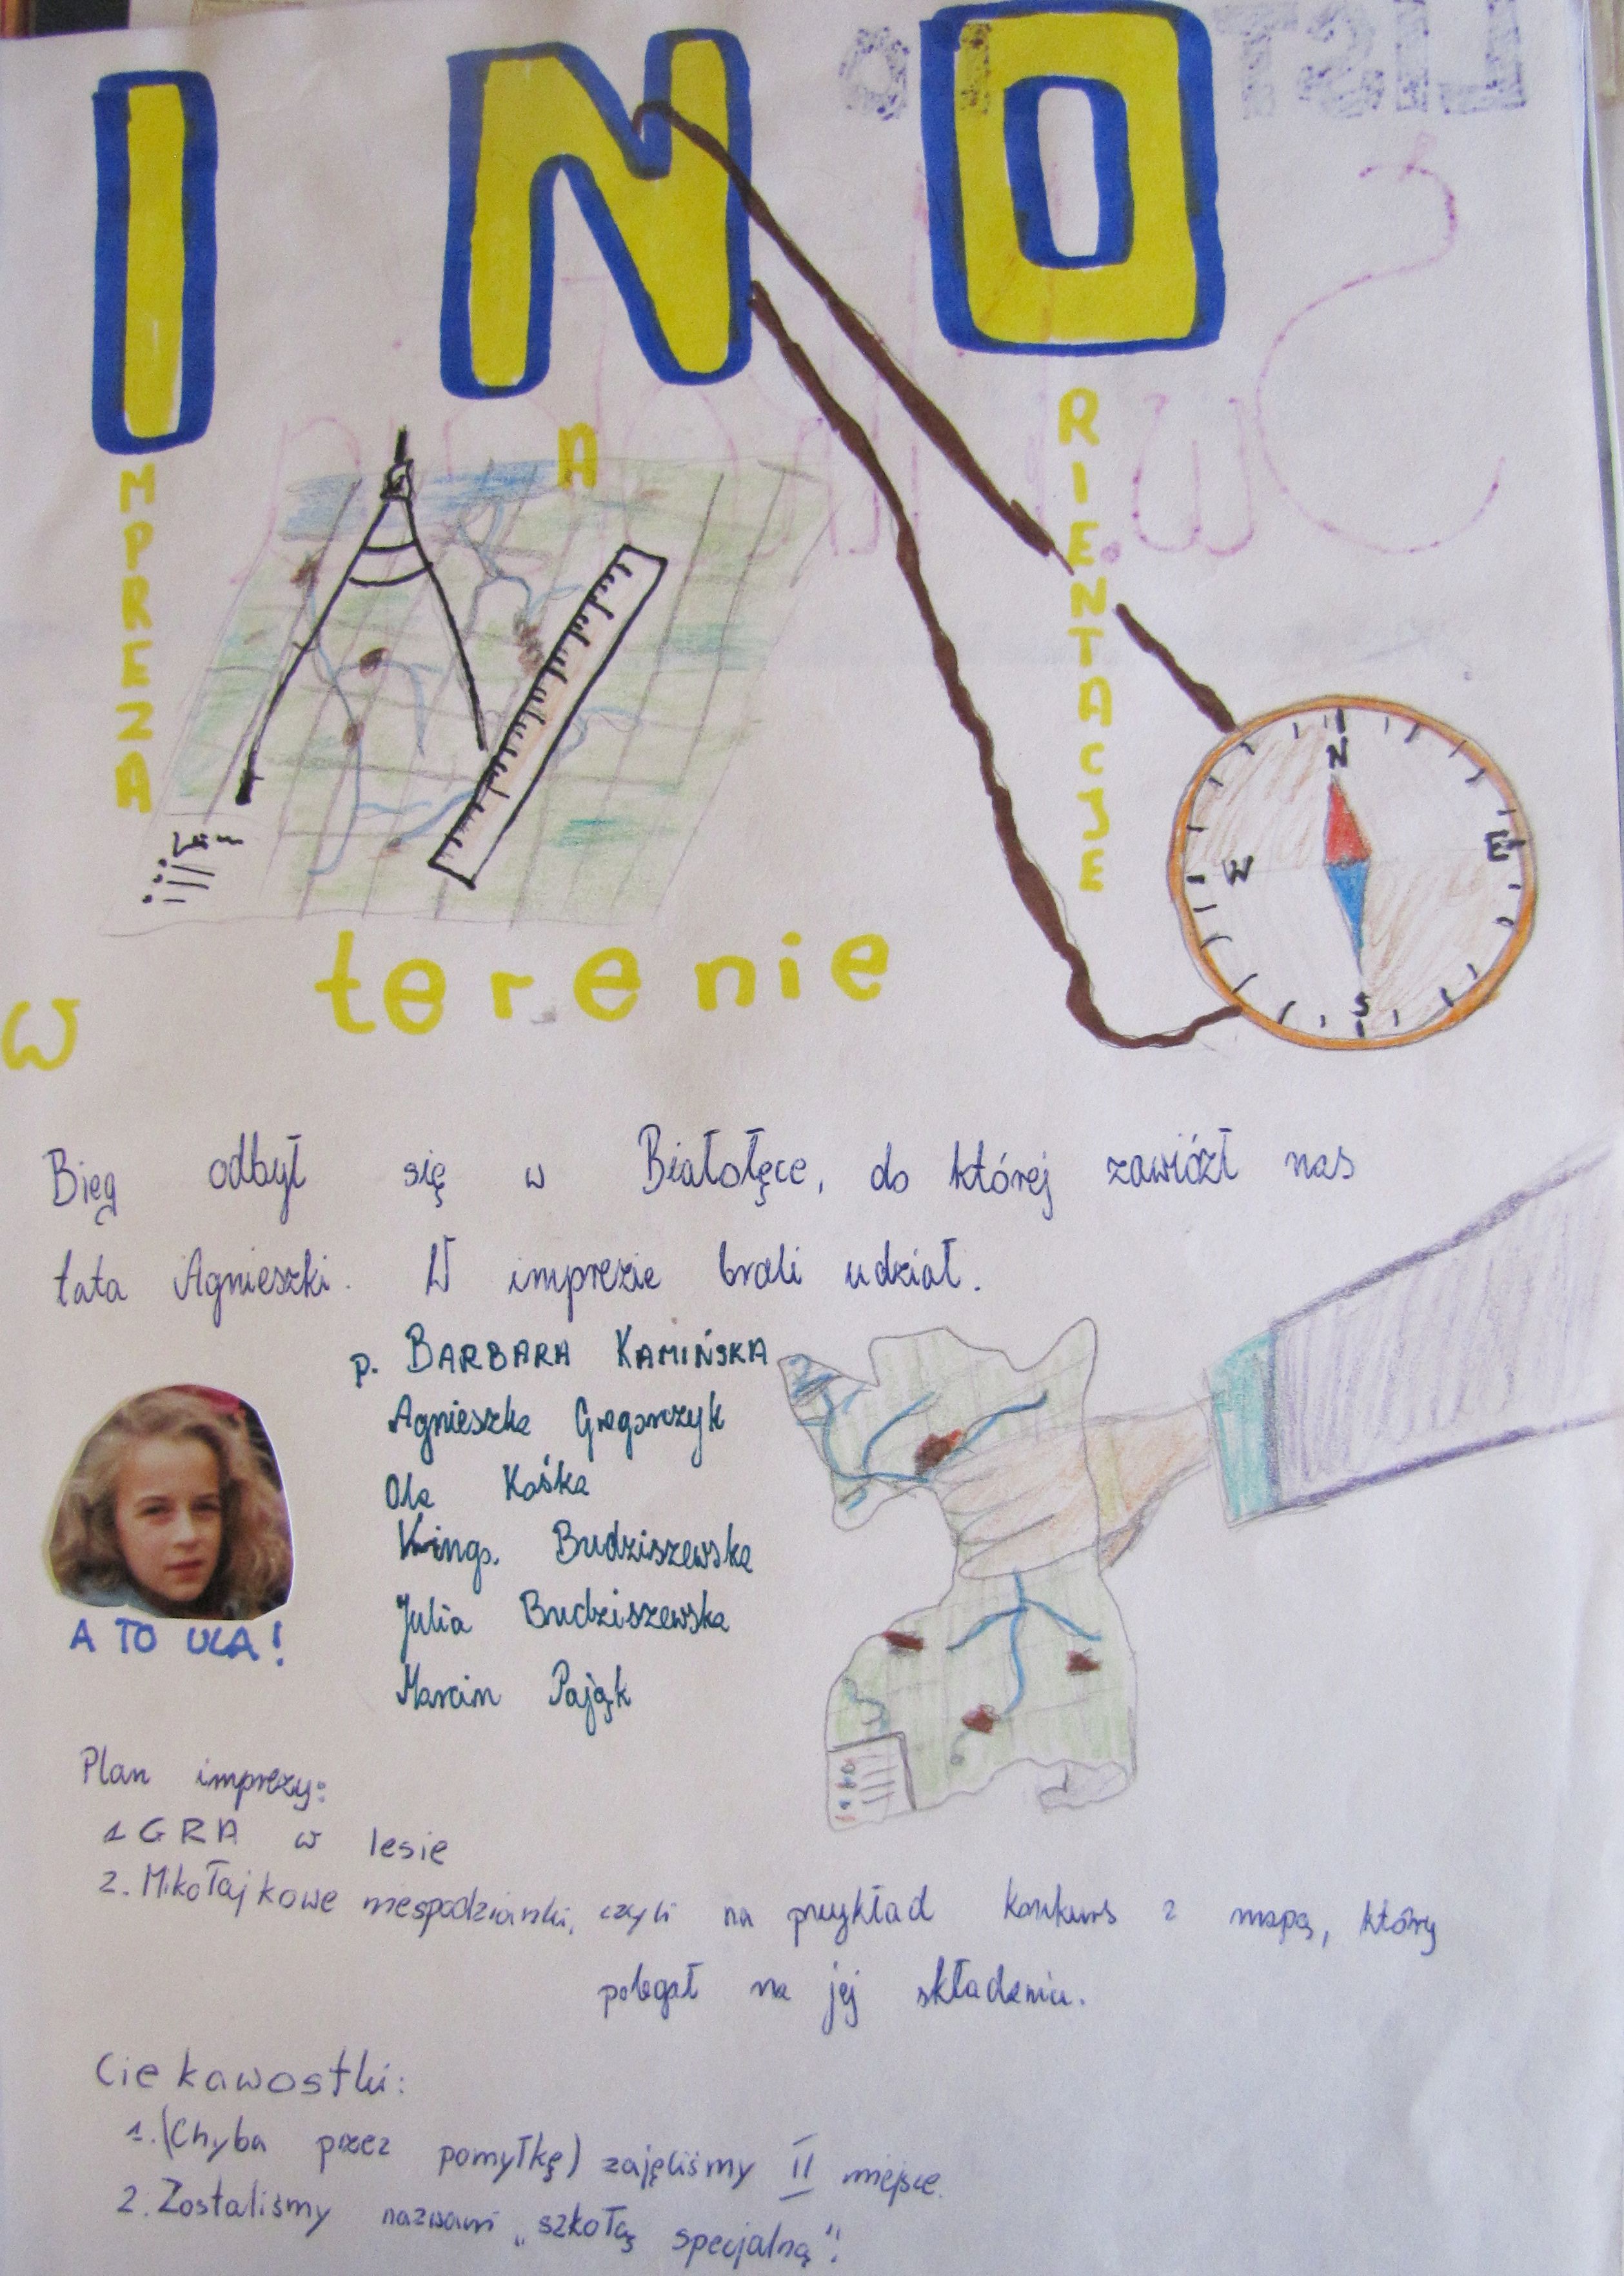 INO
IMPREZA
NA
ORIENTACJE
w terenie
N
E
W
S
Bieg odbył się w Białołęce, do której zawiózł nas
tata Agnieszki. W imprezie brali udział.
p. BARBARA KAMIŃSKA
Agnieszka Gregorczyk
Ola Kośka
Kinga Budziszewska
Julia Budziszewska
Marcin Pająk
A TO ULA!
Plan imprezy:
1 GRA w lesie
2. Mikołajkowe niespodzianki, czyli na przykład konkurs z mapą, który
polegał na jej składaniu.
Ciekawostki:
1. (Chyba przez pomyłkę) zajęliśmy II miejsce.
2. Zostaliśmy nazwani „szkołą specjalną"!